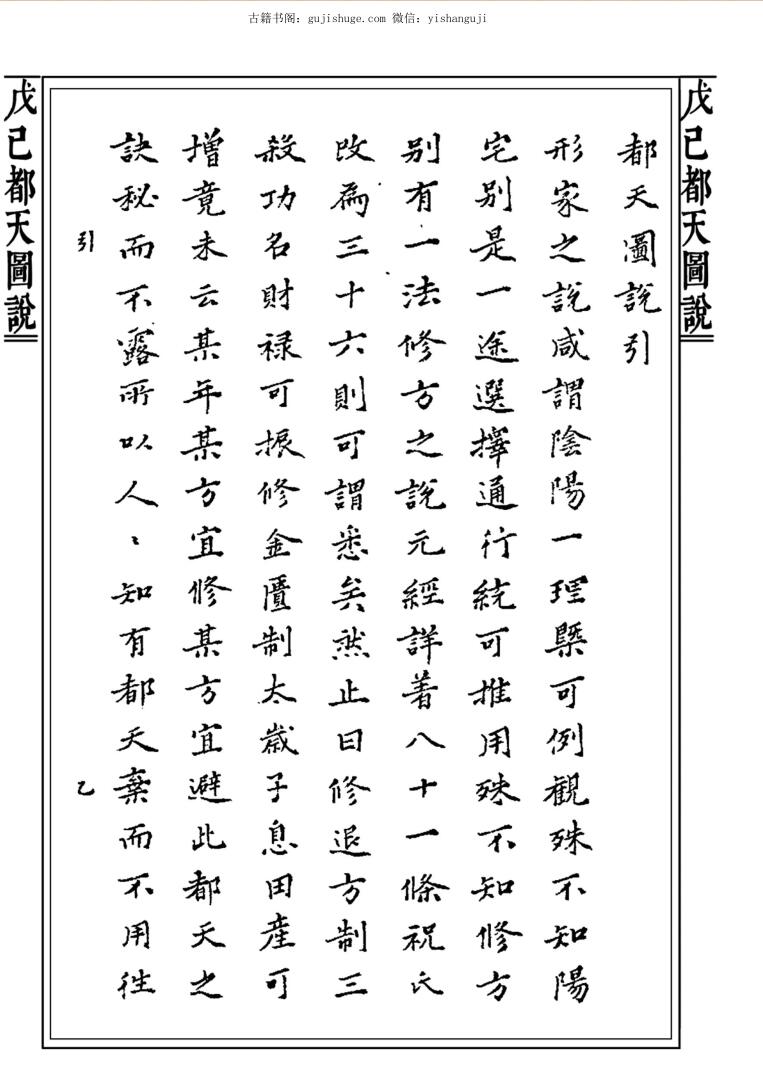 古籍书阁：gujishuge.com 微信：yishanguji
戊己都天圖說
都天圖說引
形家之説咸謂陰陽一理槩可例觀殊不知陽
宅別是一途選擇通行統可推用殊不知修方
別有一法修方之説元經詳著八十一條祝氏
改為三十六則可謂悉矣然止曰修退方制三
殺功名財禄可振修金匱制太歲子息田產可
增竟未云某年某方宜修某方宜避此都天之
訣秘而不露所以人〻知有都天棄而不用徃
戊己都天圖說
引
乙